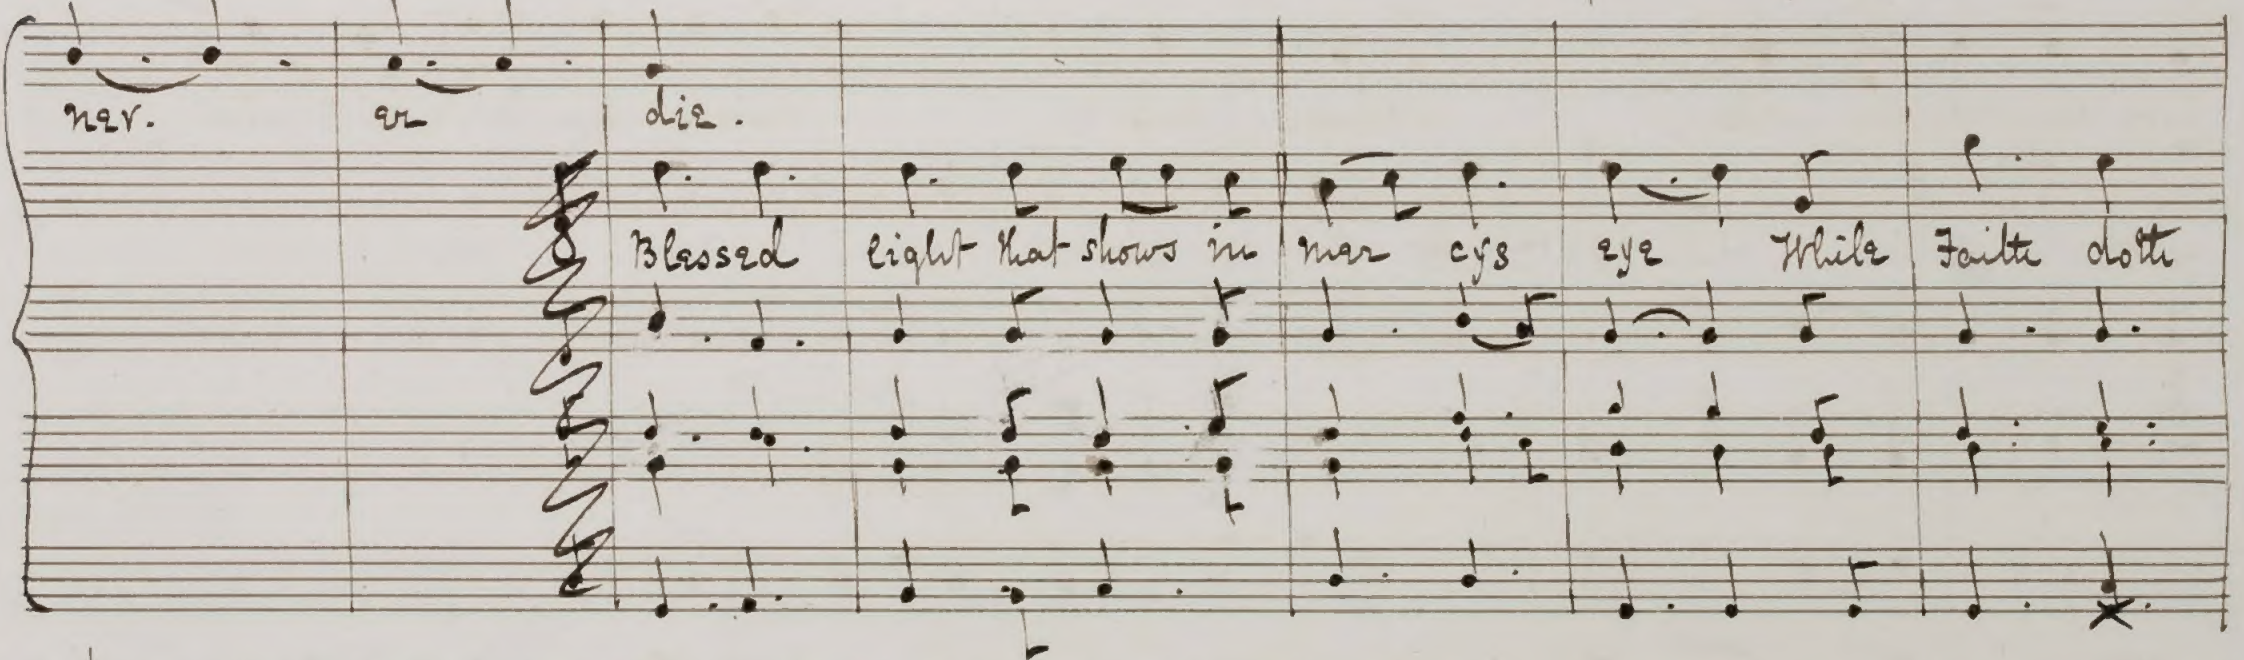 nev. er die.
Blessed light that shows in mer cys eye While Faith doth